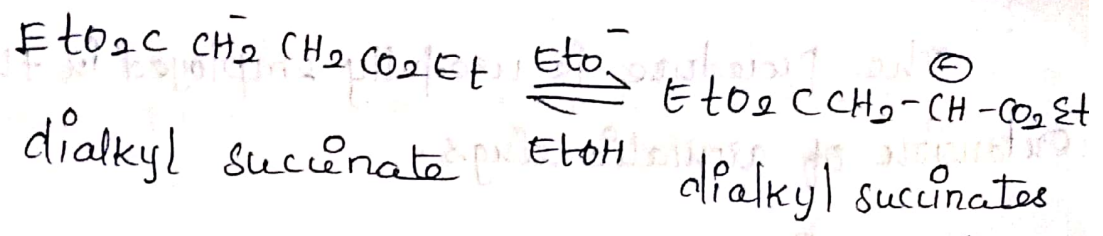 EtO₂C CH̄₂ CH₂ CO₂Et ⇌ EtO⁻ EtOH EtO₂CCH₂-CH⊖-CO₂Et
dialkyl succinate dialkyl succinates